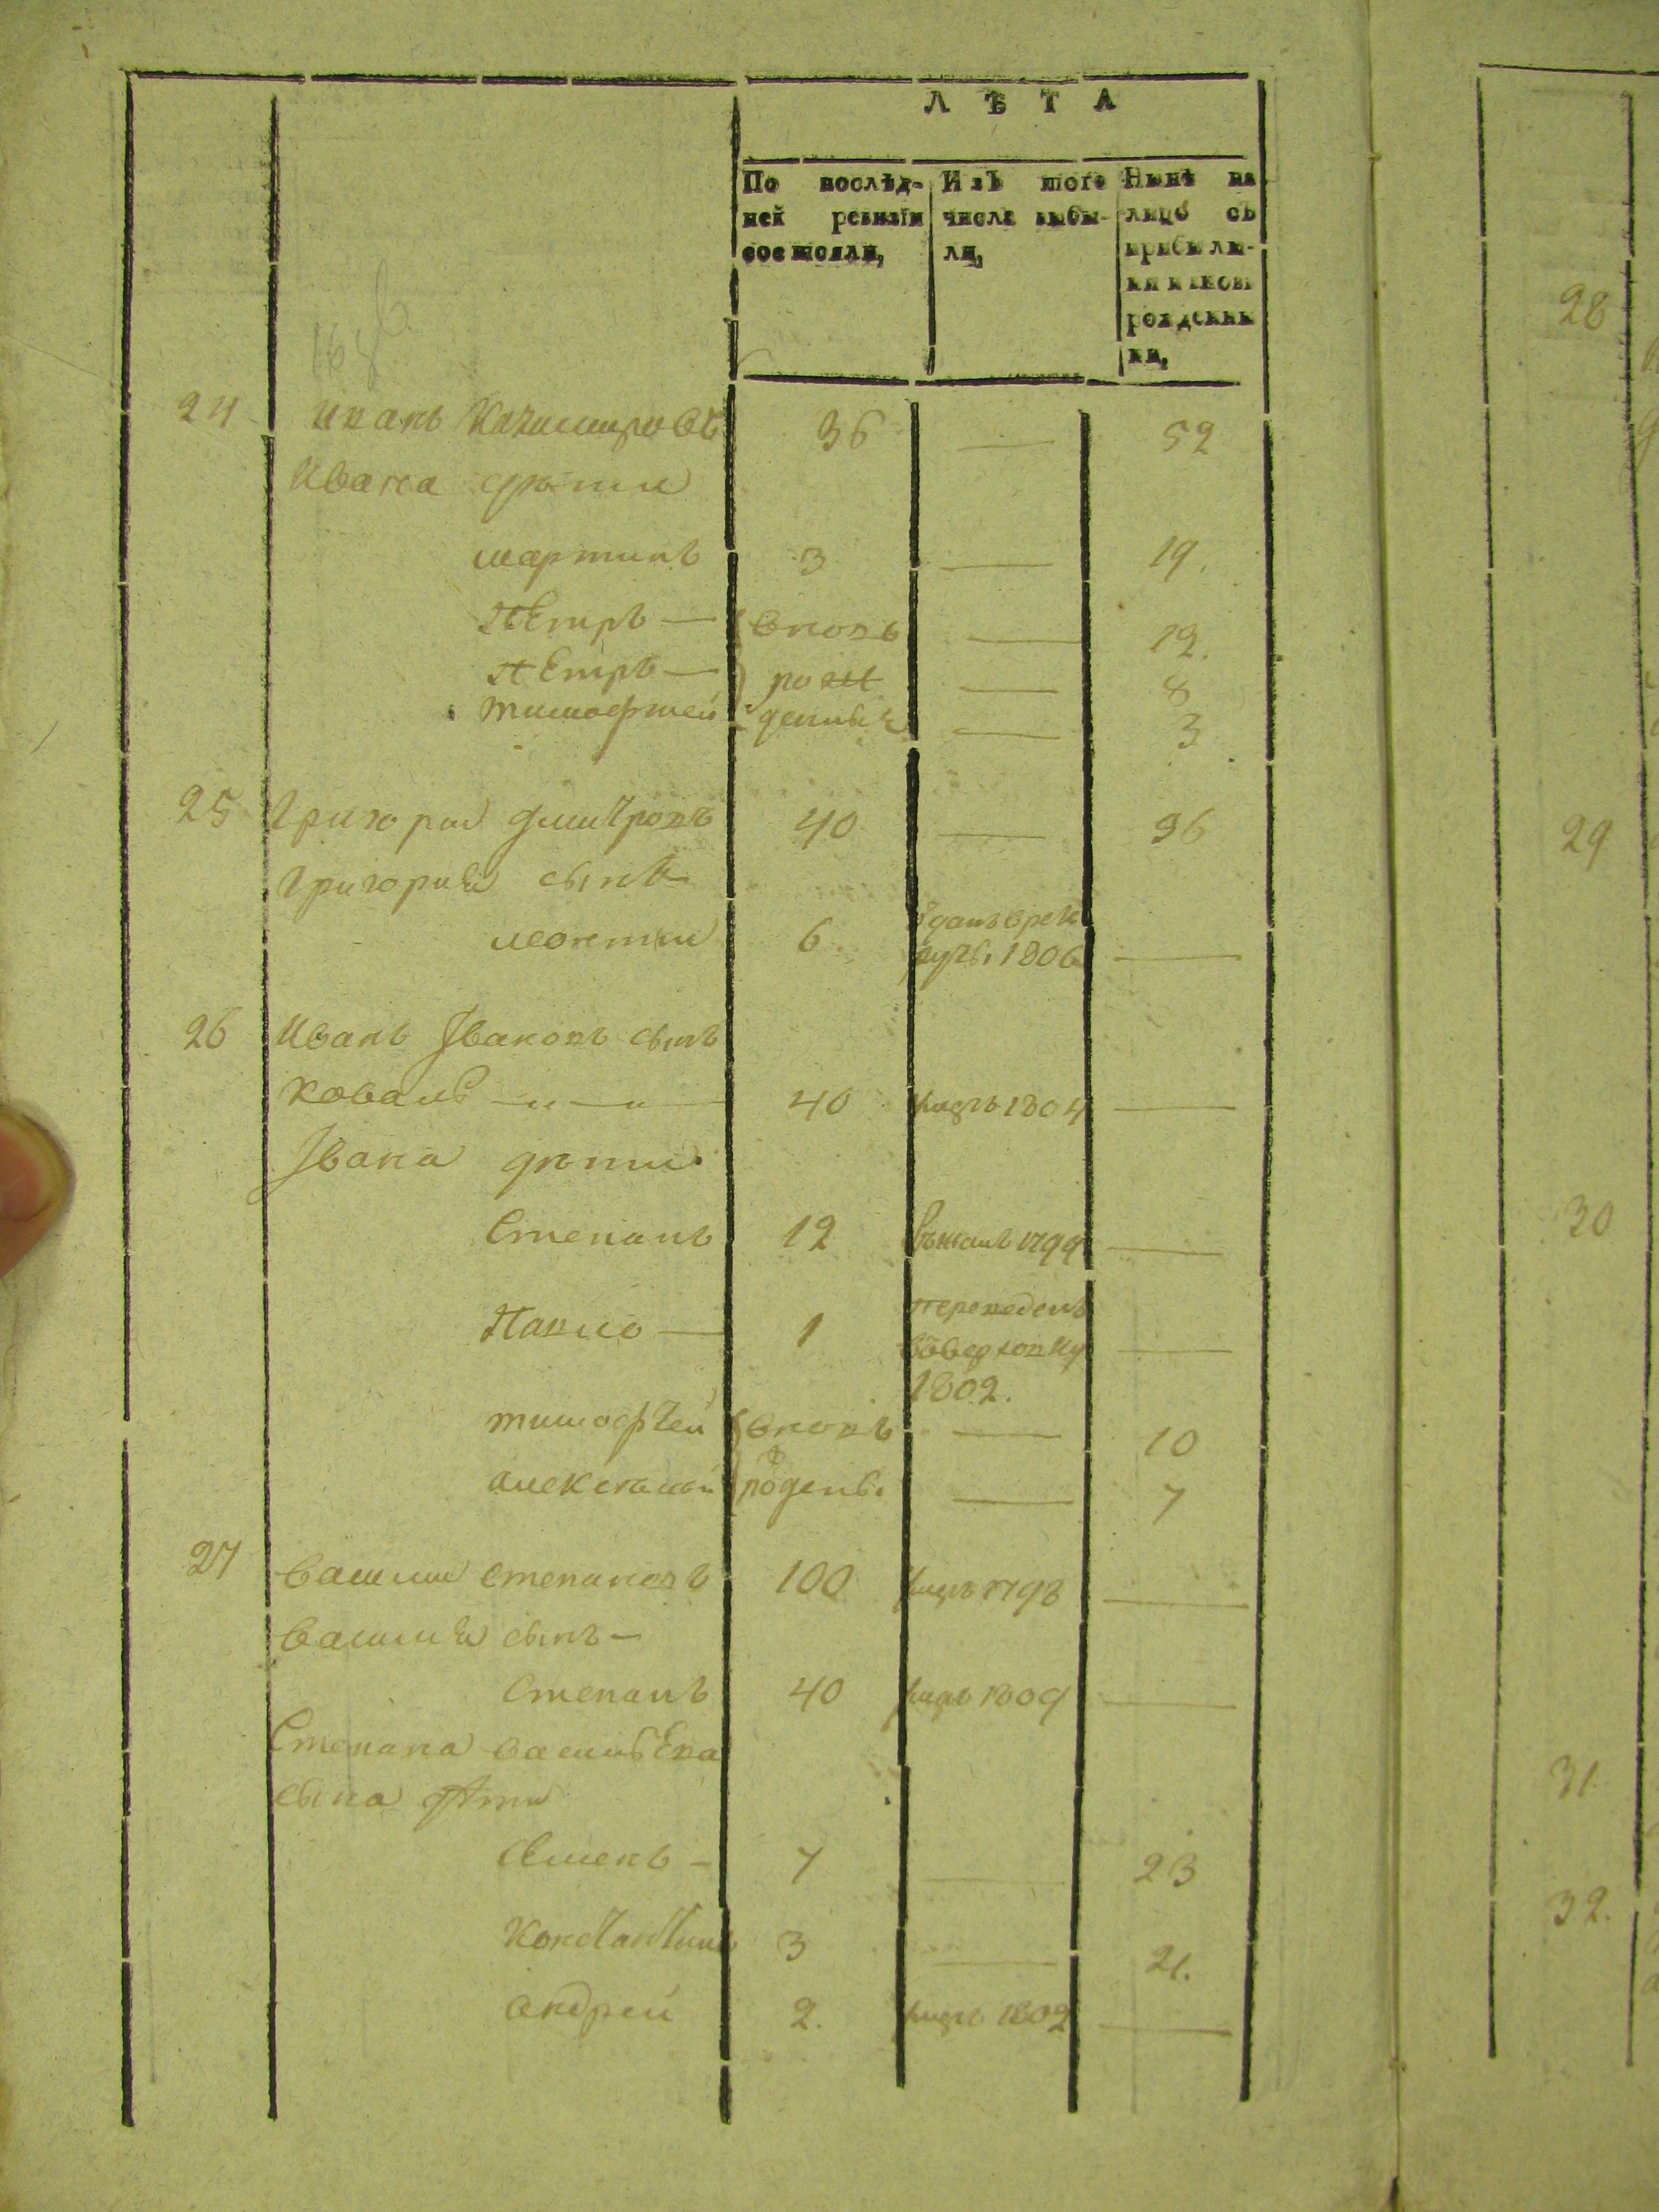 Л Ѣ Т А
По послѣд-
ней ревизіи
состояли,
Изъ того
числа выбы-
ли,
Нынѣ на
лицо съ
прибылы-
ми и вновь
рожденны
ми,
24 Иванъ Казимировъ 36 — 52
Ивана дѣти
мартинъ 3 — 19.
пЕтръ — вновь — 12.
пЕтръ — рож — 8
тимофтей денныя — 3
25 Григори дмитровъ 40 — 56
Григория сынъ
леонтии 6 ѿданъ врек
рутъ. 1806 —
26 Иванъ Јвановъ сынъ
коваль —„—„— 40 умръ 1804 —
Јвана дѣти.
Степанъ 12 бѣжалъ 1799 —
Павло — 1 переведенъ
въверховку —
1802.
тимофтей вновь — 10
алексѣй рожденъ. — 7
27 василии степановъ 100 умръ 1798 —
василия сынъ —
степанъ 40 умръ 1809 —
Степана васильЕва
сына дѣти
сЕменъ — 7 — 23
константинъ 3 — 21.
андрей 2. умръ 1802 —
28
29
30
31.
32.